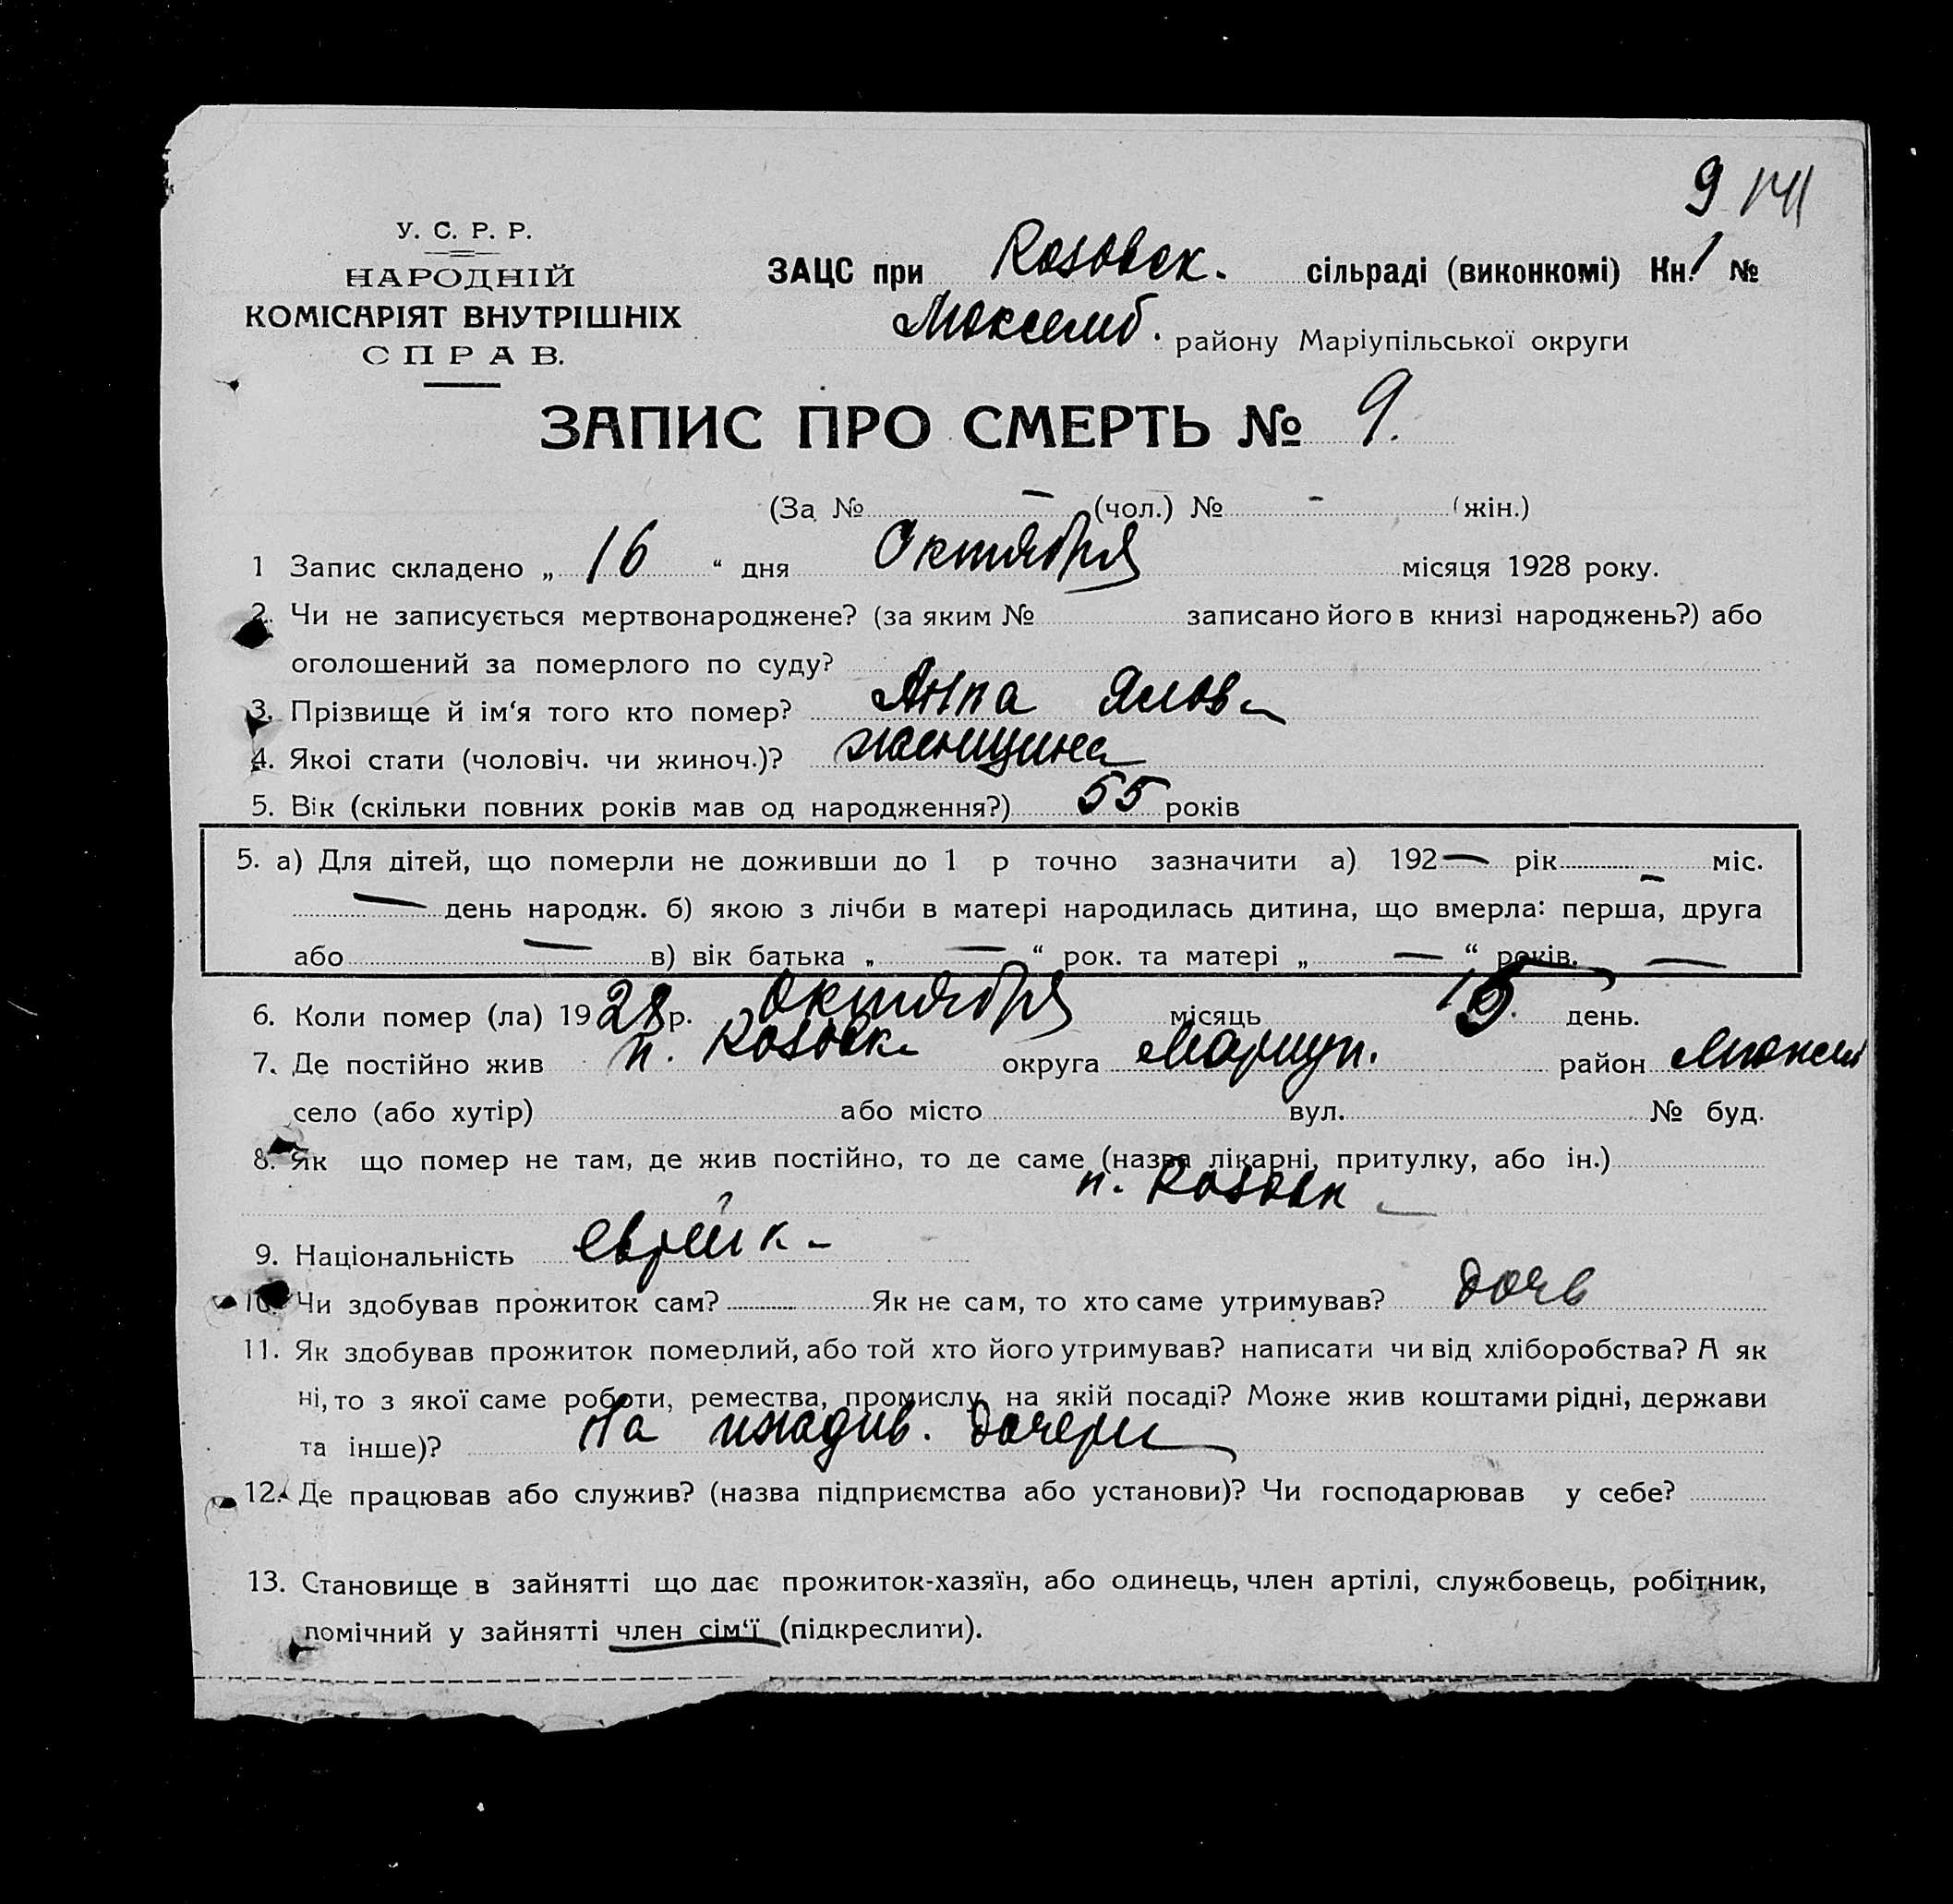 9
У. С. Р. Р.
НАРОДНІЙ
КОМІСАРІЯТ ВНУТРІШНІХ
СПРАВ.
ЗАЦС при Rosовск. сільраді (виконкомі) Кн. 1 №
району Маріупільської округи
ЗАПИС ПРО СМЕРТЬ № 9.
(За № — (чол.) № - (жін.)
1 Запис складено „ 16 “ дня Октября місяця 1928 року.
2. Чи не записується мертвонароджене? (за яким № записано його в книзі народжень?) або
оголошений за померлого по суду?
3. Прізвище й ім‘я того кто помер? Анна
4. Якоі стати (чоловіч. чи жиноч.)? женщина
5. Вік (скільки повних років мав од народження?) 55 років
5. а) Для дітей, що померли не доживши до 1 р точно зазначити а) 192— рік — міс.
— день народж. б) якою з лічби в матері народилась дитина, що вмерла: перша, друга
або — в) вік батька „ — “ рок. та матері „ — “ років. —
6. Коли помер (ла) 1928 р. Октября місяць 15. день.
7. Де постійно жив п. Rosовк округа Мариуп. район
село (або хутір) або місто вул. № буд.
8. Як що помер не там, де жив постійно, то де саме (назва лікарні, притулку, або ін.)
п. Rosовк
9. Національність еврейк-
10. Чи здобував прожиток сам? Як не сам, то хто саме утримував? дочь
11. Як здобував прожиток померлий, або той хто його утримував? написати чи від хліборобства? А як
ні, то з якої саме роботи, ремества, промислу, на якій посаді? Може жив коштами рідні, держави
та інше)? На иждив. дочери
12. Де працював або служив? (назва підприємства або установи)? Чи господарював у себе?
13. Становище в зайнятті що дає прожиток-хазяїн, або одинець, член артілі, службовець, робітник,
помічний у зайнятті член сім‘ї (підкреслити).